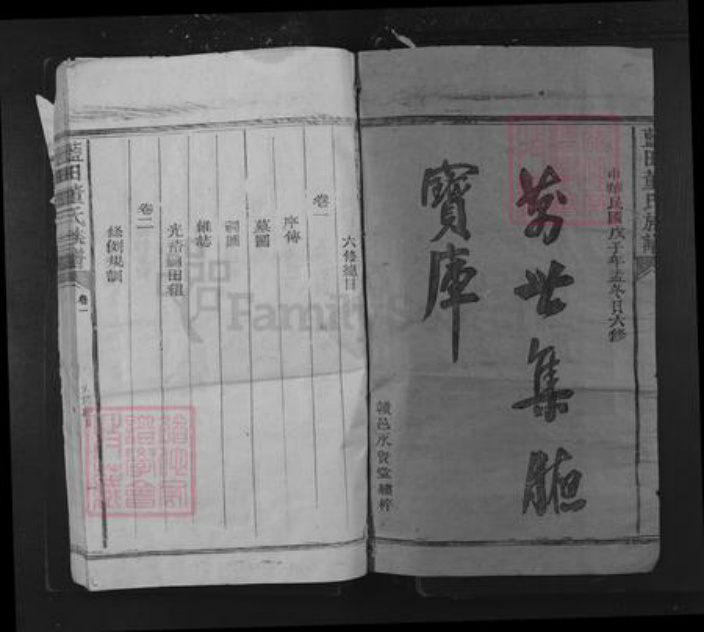 藍田董氏族譜
中華民國戊子年孟冬月六修
萬世集
寶庫
贛邑永資堂繡梓
六修總目
卷一
序傳
墓圖
祠圖
雜誌
光裕祠田租
卷二
條例規訓
藍田董氏族譜
卷一
FamilySearch